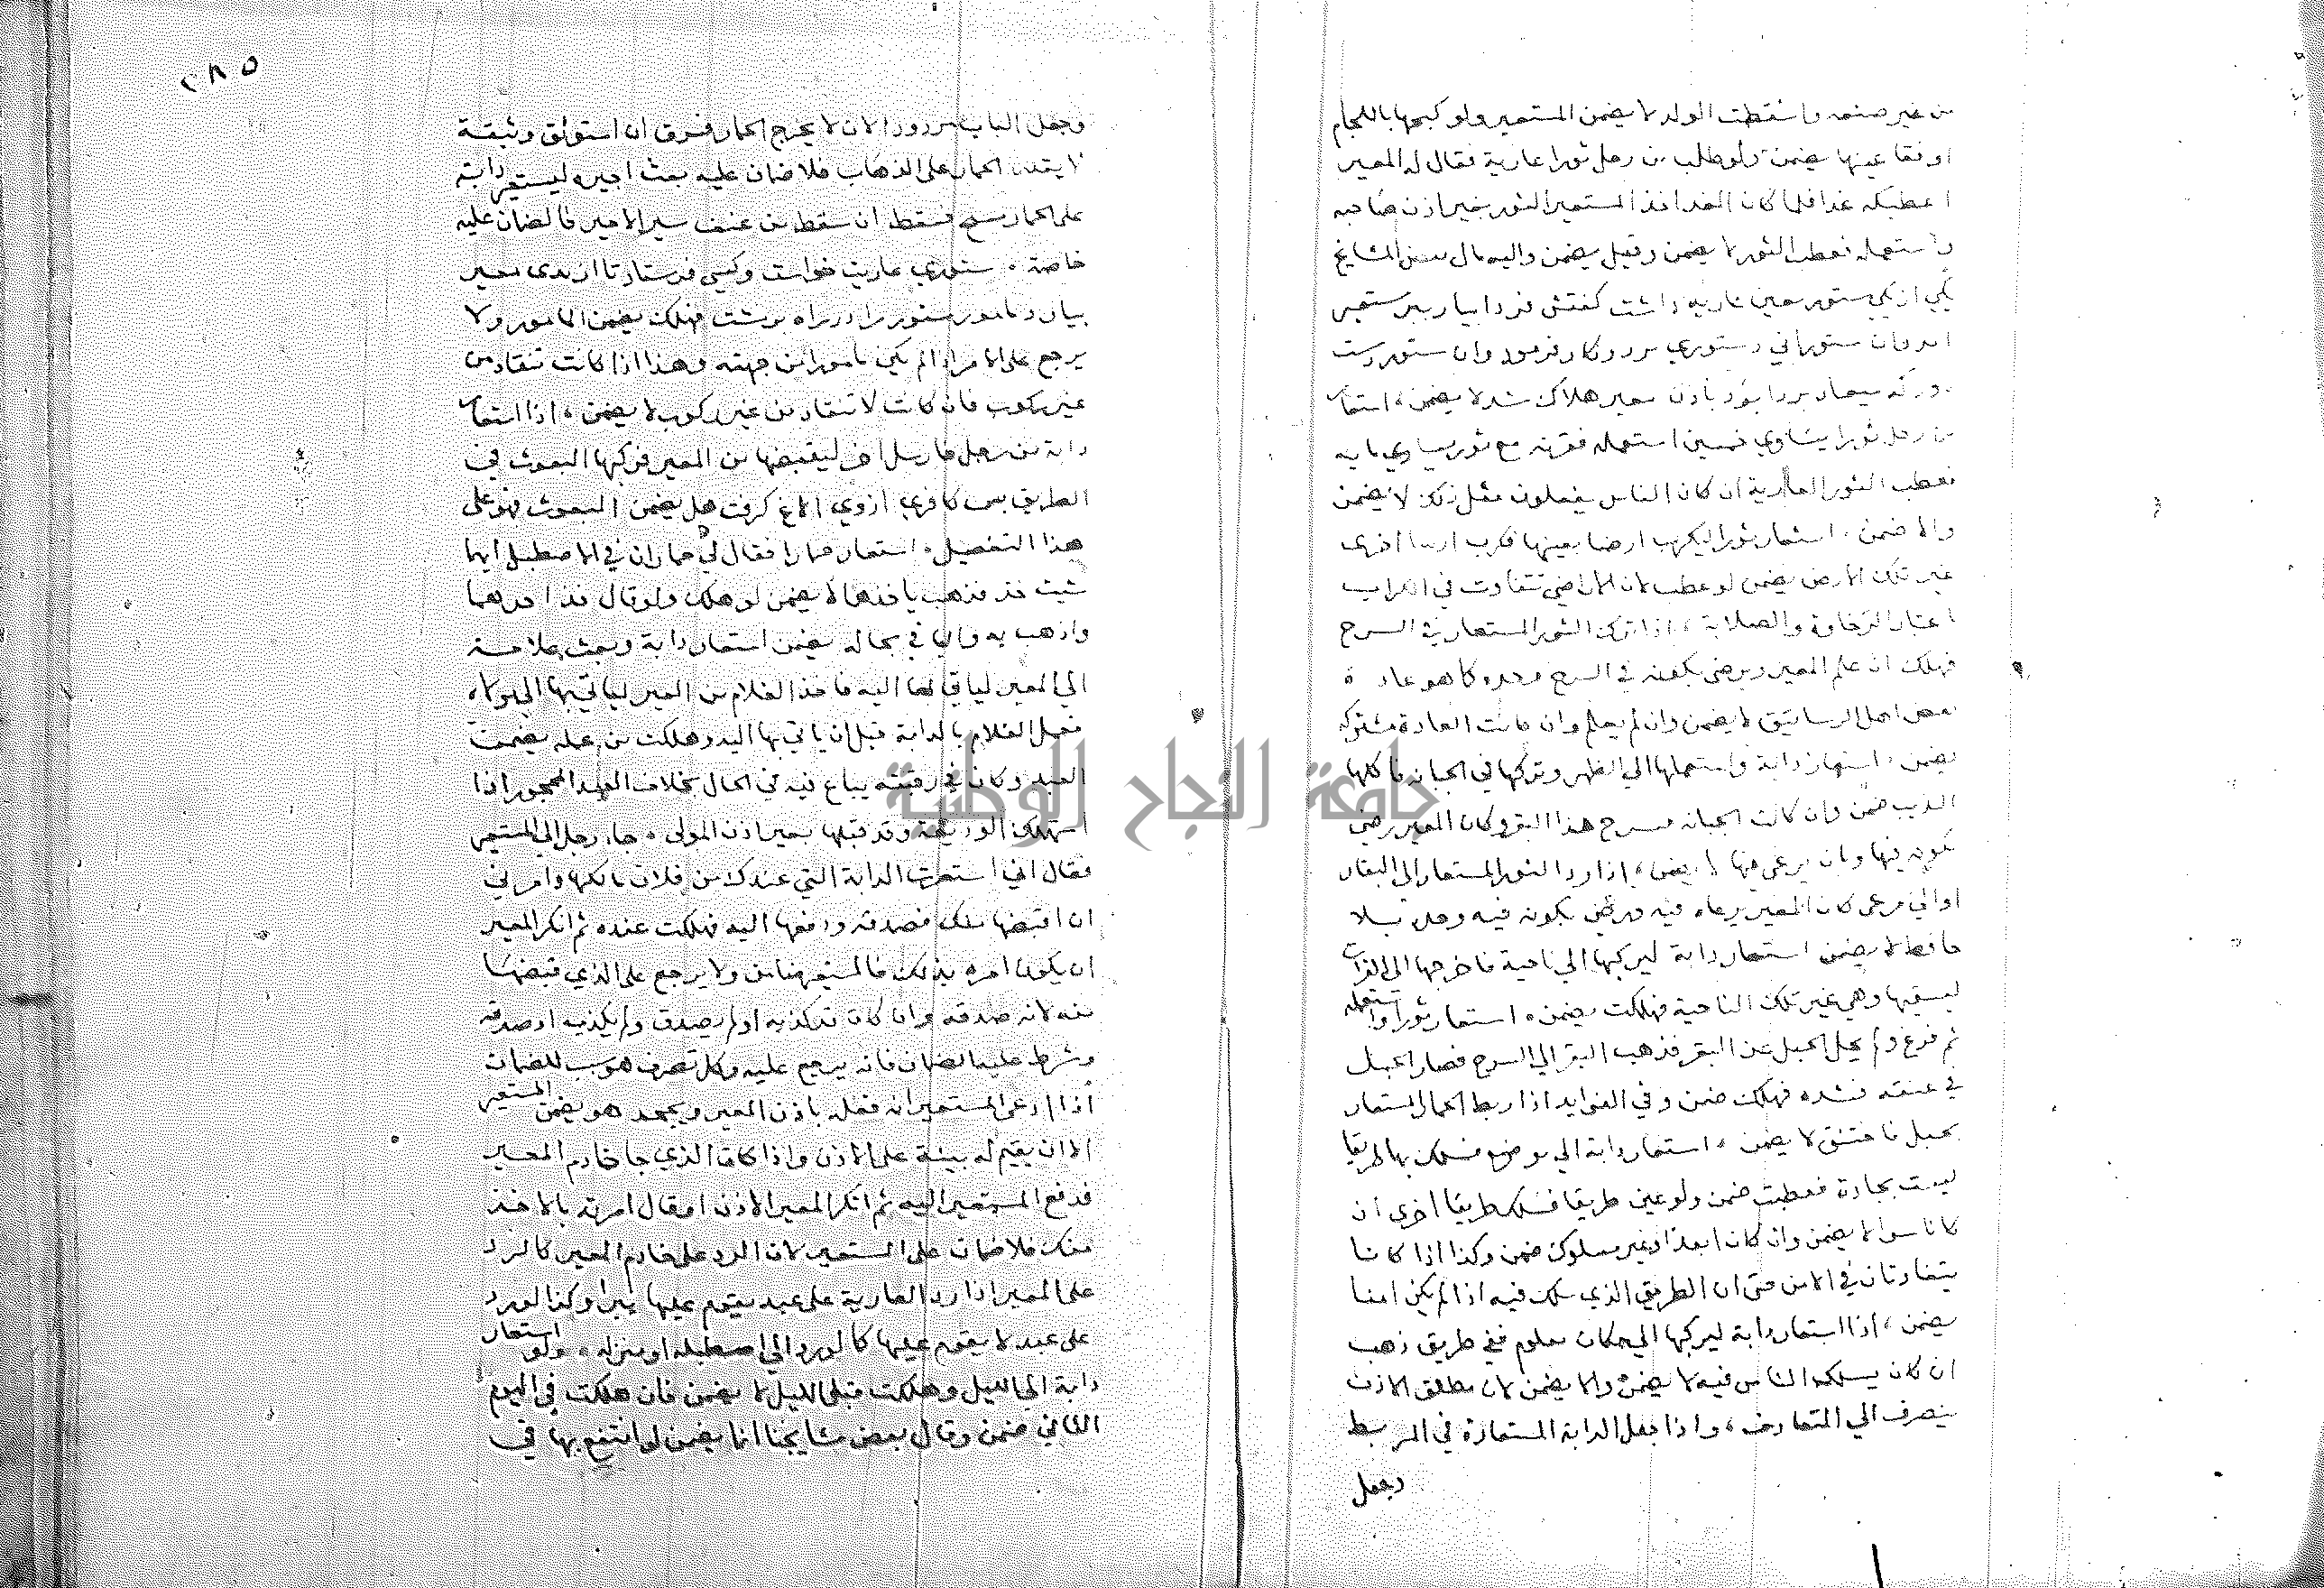 من غير صنعه واسقطت الولد لا يضمن المستعير ولو كبحها باللجام
او فقا عينها يضمن ولو طلب من رجل ثورا عارية فقال له المعير
اعطيكه غدا فلما كان الغد اخذ المستعير الثور بغير اذن صاحبه
واستعمله فعطب الثور لا يضمن وقيل يضمن واليه مال بعض المشايخ
يكي از يكي ستور بعاريه داشت كفتش فردا بيا ببر مستعير
ستور بي دستوري ببرد وكار فرمود وان ستور
هلاك شد لا يضمن، استعار
من رجل ثورا يساوي خمسين استعمله فقرنه مع ثور يساوي مايه
فعطب الثور العارية ان كان الناس يفعلون مثل ذلك لا يضمن
والا ضمن، استعار ثورا ليكرب ارضا بعينها فكرب ارضا اخرى
غير تلك الارض يضمن لو عطب لان الاراضي تتفاوت في الكراب
اعتبار الرخاوة والصلابة، اذا ترك الثور المستعار في السرح
فهلك ان علم المعير ويرضى بكونه في السرح وحده كما هو عادة
بعض اهل الرساتيق لا يضمن وان لم يعلم وان كانت العادة مشتركة
يضمن، استعار دابة واستعملها الي الظهر وتركها في الجبانه فاكلها
الذيب ضمن وان كانت الجبانه مسرح هذا البقر وكان المعير يرضى
بكونه فيها وبان يرعى فيها لا يضمن، اذا رد الثور المستعار الى البقار
او الي مرعى كان المعير يرعاه فيه ويرضى بكونه فيه وحده بلا
حافظ لا يضمن استعار دابة ليركبها الي ناحية فاخرجها الى الفرات
ليسقيها وهي غير تلك الناحية فهلكت يضمن، استعار ثورا واستعمله
ثم فرغ ولم يحل الحبل عن البقر فذهب البقر الي السرح فصار الحبل
في عنقه فشده فهلك ضمن وفي الفوايد اذا ربط الحمار المستعار
بحبل فاختنق لا يضمن، استعار دابة الي موضع فسلك بها طريقا
ليست بجادة فعطبت ضمن ولو عين طريقا فسلك طريقا اخرى ان
كانا سوا لا يضمن وان كان ابعد او غير مسلوك ضمن وكذا اذا كانا
يتفاوتان في الامن حتى ان الطريق الذي سلك فيه اذا لم يكن امنا
يضمن، اذا استعار دابة ليركبها الي مكان معلوم ففي طريق ذهب
ان كان يسلكه الناس فيه لا يضمن والا يضمن لان مطلق الاذن
ينصرف الي المتعارف، واذا جعل الدابة المستعارة في المربط
وجعل
٢٨٥
وجعل الباب مردودا لان لا يخرج الحمار فسرق ان استوثق وثيقة
لا يقدر الحمار على الذهاب فلا ضمان عليه بعث اجيره ليستعير دابة
على الحمار فسقط ان سقط من عنف سير الاجير فالضمان عليه
خاصة، ستوري عاريت خواست وكسي فرستاد تا از نزدي معير
بيارد مامور ستور را در راه برنشت فهلك يضمن المامور ولا
يرجع على الامر اذا لم يكن مامورا من جهته وهذا اذا كانت تنقاد من
غير ركوب فان كانت لا تنقاد من غير ركوب لا يضمن، اذا استعار
دابة من رجل فارسل اخر ليقبضها من المعير فركبها المبعوث في
الطريق هل يضمن المبعوث فهو على
هذا التفصيل، استعار حمارا فقال لي حماران في الاصطبل ايهما
شيت خذ فذهب ياخذها لا يضمن لو هلك ولو قال خذ احدهما
واذهب به والباقي بحاله يضمن استعار دابة وبعث غلامه
الي المعير لياتي بها اليه فاخذ الغلام من المعير لياتي بها الي مولاه
فعمل الغلام بالدابة قبل ان ياتي بها اليه وهلكت من عمله يضمن
العبد وكان في رقبته يباع فيه في الحال بخلاف العبد المحجور اذا
استهلك الوديعة وقد قبلها بغير اذن المولى، جاء رجل الي المستعير
فقال اني استعرت الدابة التي عندك من فلان مالكها وامرني
ان اقبضها منك فصدقه ودفعها اليه فهلكت عنده ثم انكر المعير
ان يكون امره بذلك فالمستعير ضامن ولا يرجع على الذي قبضها
منه لانه صدقه وان كان قد كذبه او لم يصدق ولم يكذب او صدقه
وشرط عليه الضمان فانه يرجع عليه وكل تصرف هو سبب للضمان
اذا ادعى المستعير انه فعله باذن المعير ويجحد هو يضمن المستعير
الا ان يقيم له بينة على الاذن واذا كان الذي جا خادم المعير
فدفع المستعير اليه ثم انكر المعير الاذن او قال امرته بالاخذ
منك فلا ضمان على المستعير لان الرد على خادم المعير كالرد
على المعير اذا رد العارية على عبد يقوم عليها يبرا وكذا لو رد
على عبد لا يقوم عليها كالورد الي اصطبله او منزله، ولو استعار
دابة الي الليل وهلكت قبل الليل لا يضمن فان هلكت في اليوم
الثاني ضمن وقال بعض مشايخنا انما يضمن لو انتفع بها في
جامعة النجاح الوطنية